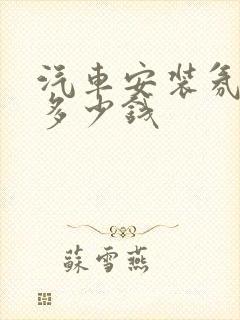 汽車安裝氛
多少錢
蘇雪燕